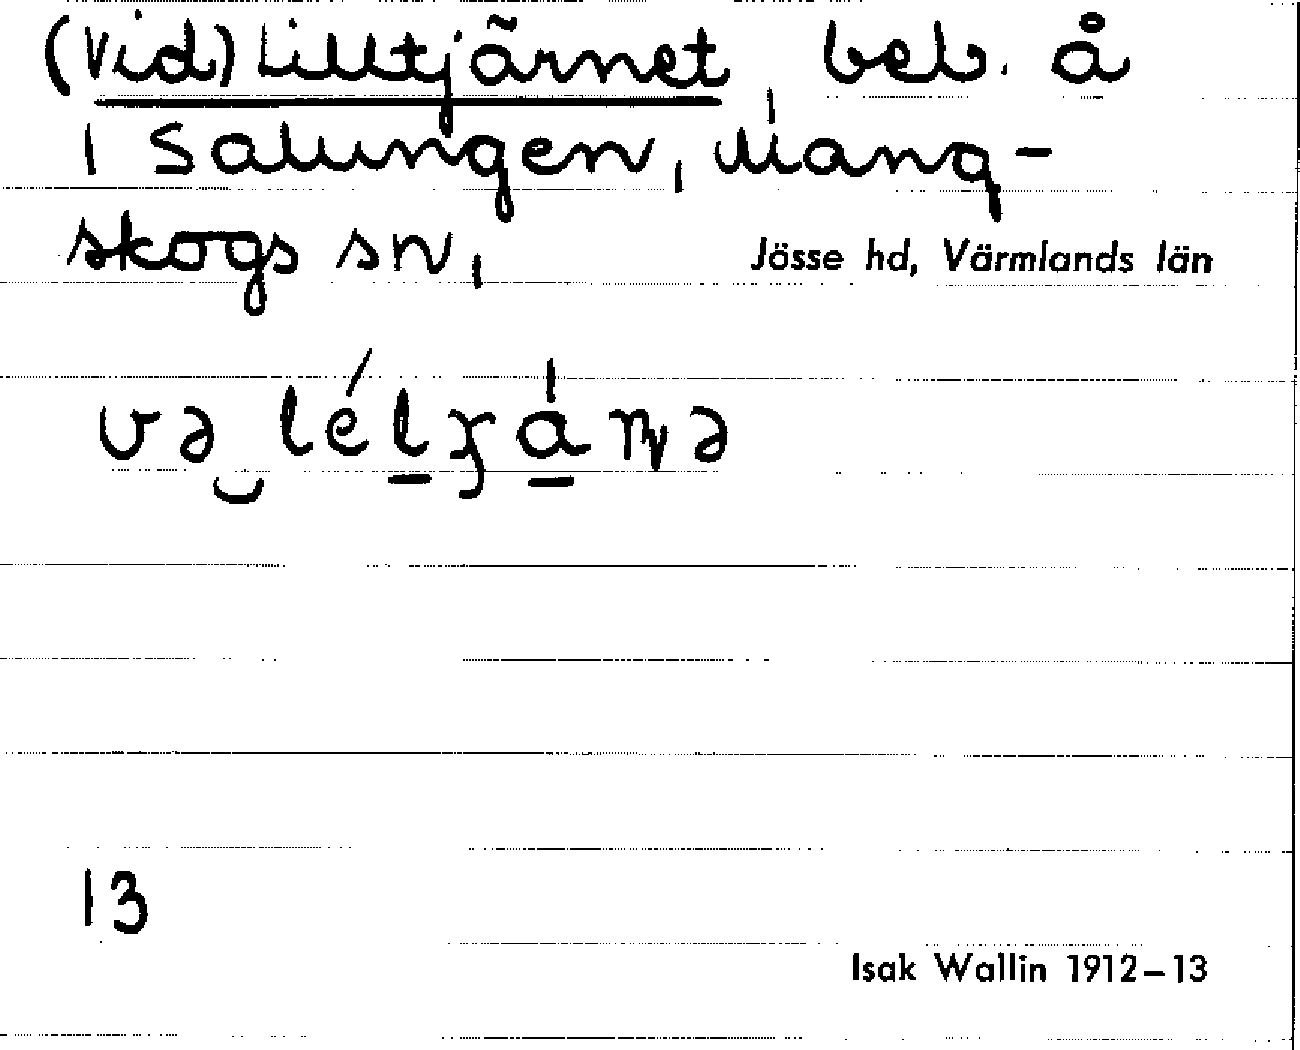 (Vid) Lilltjärnet, beb. å
1 Salungen, Mang-
skogs sn, Jösse hd, Värmlands län
13
Isak Wallin 1912–13